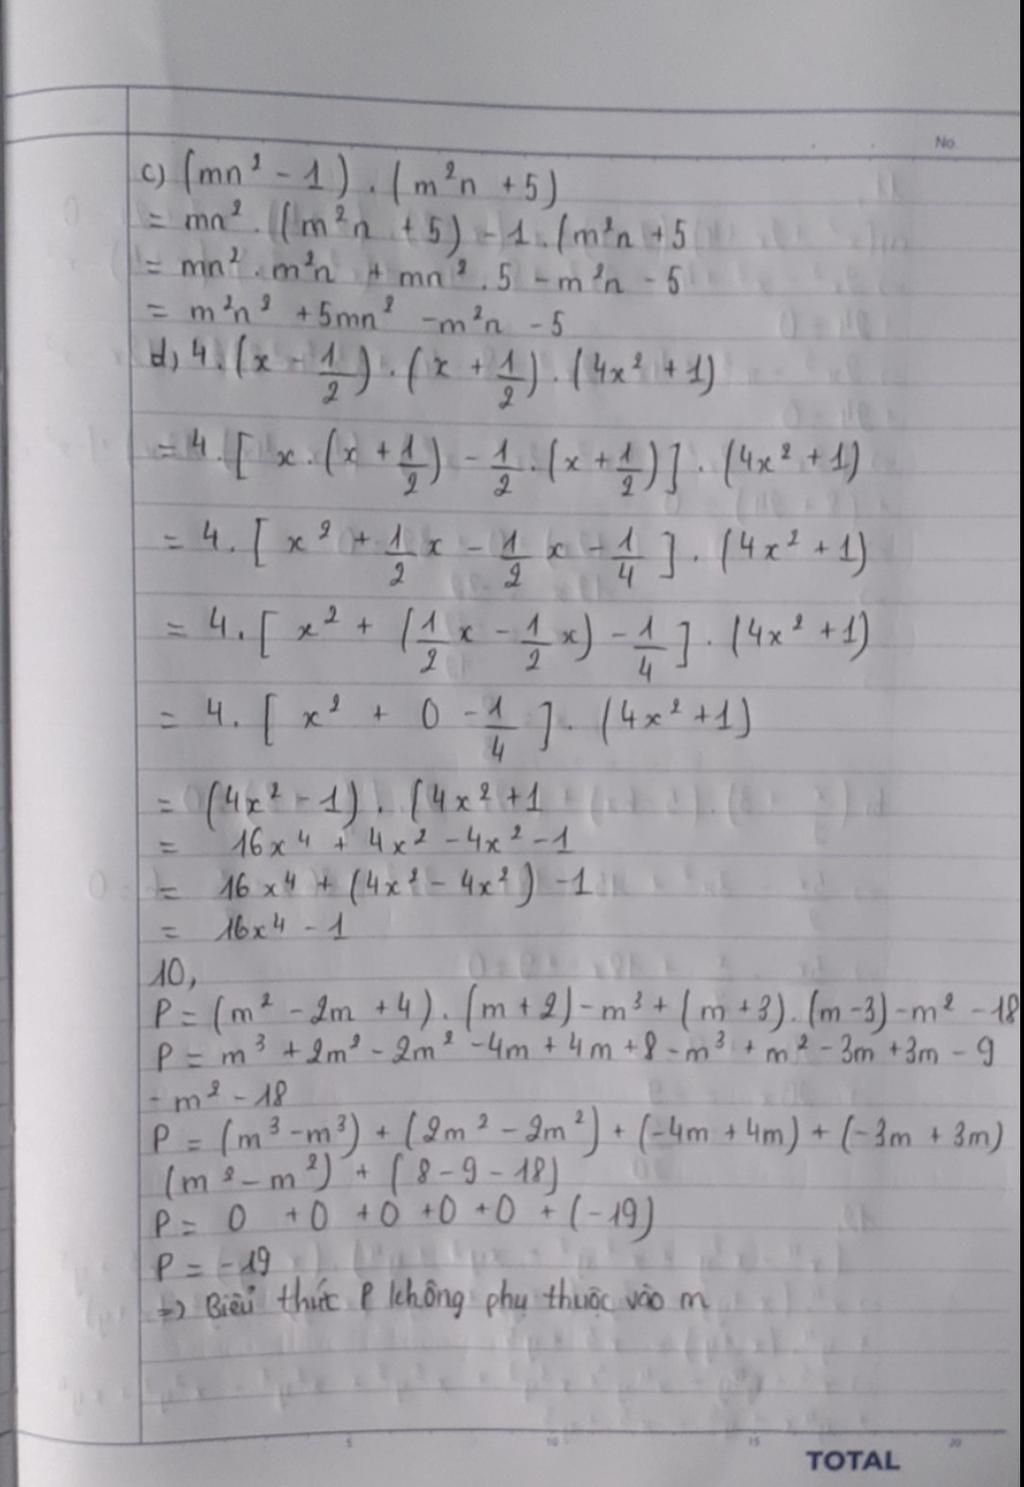 No.
c) (mn² - 1) . (m²n + 5)
= mn² . (m²n + 5) - 1 . (m²n + 5
= mn² . m²n + mn² . 5 - m²n - 5
= m²n² + 5mn² - m²n - 5
d, 4 . (x - 1/2) . (x + 1/2) . (4x² + 1)
= 4 . [ x . (x + 1/2) - 1/2 . (x + 1/2) ] . (4x² + 1)
= 4 . [ x² + 1/2 x - 1/2 x - 1/4 ] . (4x² + 1)
= 4 . [ x² + (1/2 x - 1/2 x) - 1/4 ] . (4x² + 1)
= 4 . [ x² + 0 - 1/4 ] . (4x² + 1)
= (4x² - 1) . (4x² + 1
= 16x⁴ + 4x² - 4x² - 1
= 16x⁴ + (4x² - 4x²) - 1
= 16x⁴ - 1
10,
P = (m² - 2m + 4) . (m + 2) - m³ + (m + 3) . (m - 3) - m² - 18
P = m³ + 2m² - 2m² - 4m + 4m + 8 - m³ + m² - 3m + 3m - 9
- m² - 18
P = (m³ - m³) + (2m² - 2m²) + (-4m + 4m) + (-3m + 3m)
(m² - m²) + (8 - 9 - 18)
P = 0 + 0 + 0 + 0 + 0 + (-19)
P = - 19
=> Biểu thức P không phụ thuộc vào m
5 10 15 20
TOTAL